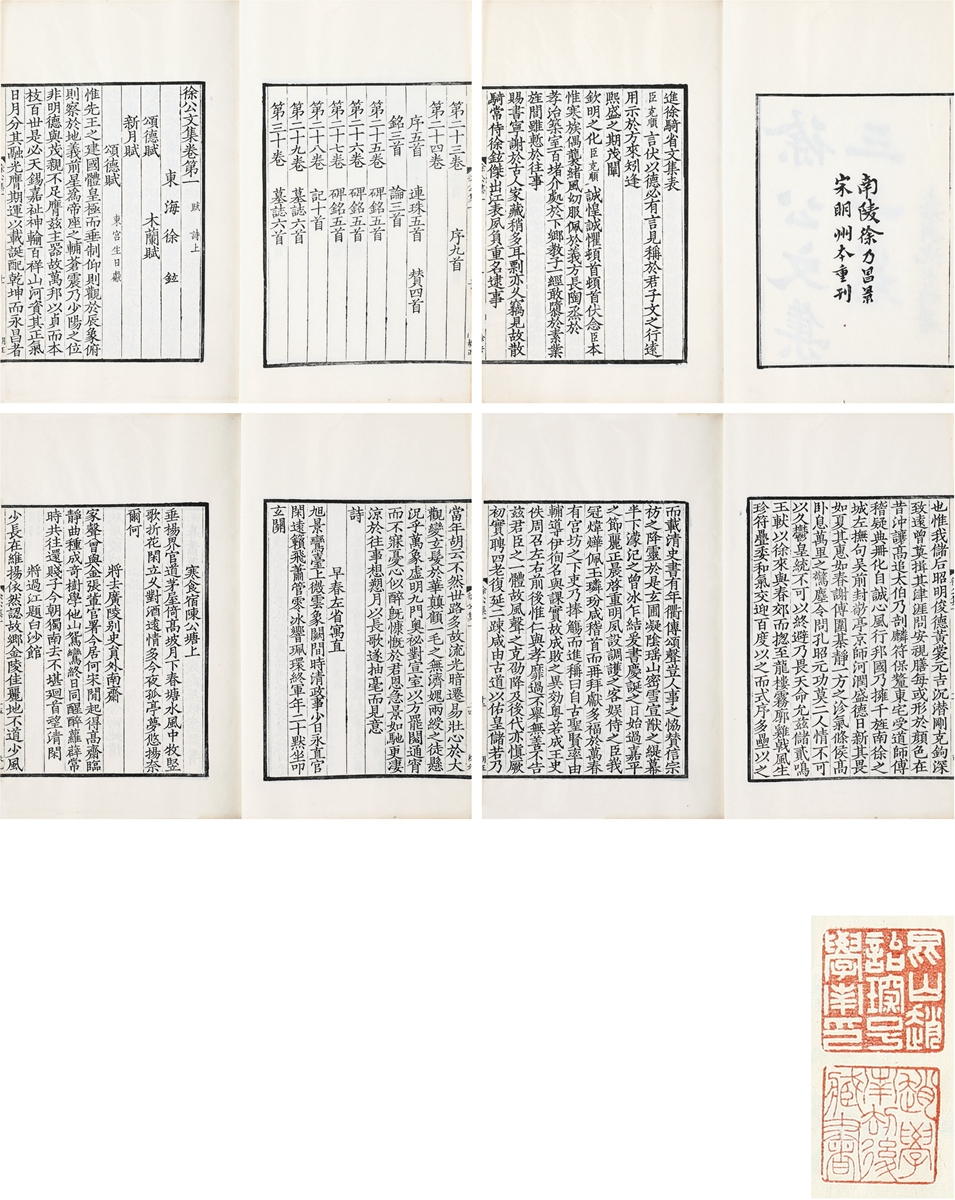 南陵徐乃昌景
宋明州本重刊
進徐騎省文集表
臣克順言伏以德必有言見稱於君子文之行遠
用示於方來矧逢
熙盛之期茂闡
欽明之化臣克順誠惶誠懼頓首頓首伏念臣本
惟寒族偶襲緒風幼服佩於義方長陶烝於
孝治築室百堵介處於下鄉教子一經敢隳於素業
旌閭雖慙於往事
賜書寧謝於古人家藏稍多耳剽亦久竊見故散
騎常侍徐鉉傑出江表夙負重名逮事
第二十三卷
序九首
第二十四卷
序五首 連珠五首 贊四首
銘三首 論三首
第二十五卷 碑銘五首
第二十六卷 碑銘五首
第二十七卷 碑銘五首
第二十八卷 記十首
第二十九卷 墓誌六首
第三十卷 墓誌六首
徐公文集卷第一 賦 詩上
東海徐鉉
頌德賦 木蘭賦
新月賦
頌德賦 東宮生日獻
惟先王之建國體皇極而垂制仰則觀於辰象俯
則察於地義前星為帝座之輔蒼震乃少陽之位
非明德與茂親不足膺茲主器故萬邦以貞而本
枝百世是必天錫嘉祉神輸百祥山河資其正氣
日月分其融光膺期運以載誕配乾坤而永昌者
也惟我儲后昭明俊德黃裳元吉沉潛剛克鉤深
致遠曾莫揖其津涯問安視膳每或形於顏色在
昔沖讓高追太伯乃剖麟符保釐東宅受道師傅
稽疑典冊化自誠心風行邦國乃擁十旌南徐之
城左撫句吳前封渤亭京師河潤盛德日新其畏
如夏其惠如春謝傅圍棊靜一方之沴氣條侯高
卧息萬里之驚塵令問孔昭元功莫二人情不可
以久鬱皇統不可以終避乃畏天命允茲儲貳鳴
玉軑以徐來與春郊而揔至龍樓霧廓雞戟風生
珍符疊委和氣交迎百度以之而式序多壘以之
而載清史書有年衢傳頌聲豈人事之恊贊信宗
祊之降靈於是玄圃凝陰瑤山密雪宣猷之緹幕
半卞濛汜之曾冰乍結爰書慶誕之日始過嘉平
之節麗正晨啓重明夙設調護之客娱侍之臣我
冠煒燁佩玉璘玢咸稽首而再拜獻多福於萬春
有官坊之下吏乃捧觴而進稱曰自古聖賢率由
輔導尹御名與課實故成敗之異効若成王史
佚周召左右前後惟仁與孝靡過不舉無善不告
茲君臣之一體故風聲之克劭降及後代亦慎厥
初實聘四老復延二踈咸由古道以佑皇儲若乃
當年胡云不然世路多故流光暗遷易壯心於大
觀變玄髮於華顛顧一毛之無濟媿兩綬之徒懸
況乎萬象虛明九門奧秘對宣室以方罷閡通宵
而不寐憂心似醉既慷慨於君恩急景如馳更淒
涼於往事想朔月以長歌遂抽毫而見意
詩
早春左省寓直
旭景鸞臺上微雲象闕閒時清政事少日永直官
閑遠籟飛蕭管零冰響珮環終軍年二十點坐叩
玄關
寒食宿陳公塘上
垂楊界官道茅屋倚高坡月下春塘水風中牧竪
歌折花閑立久對酒遠情多今夜孤亭夢悠揚奈
爾何
將去廣陵別史員外南齋
家聲曾與金張輩官署今居何宋閒起得高齋臨
靜曲種成奇樹學他山鴛鸞終日同醒醉蘿薜常
時共往還賤子今朝獨南去不堪迴首望清閑
將過江題白沙館
少長在維揚依然認故鄉金陵佳麗地不道少風
昆山趙
詒琛号
學南印
趙學
南劫後
藏書